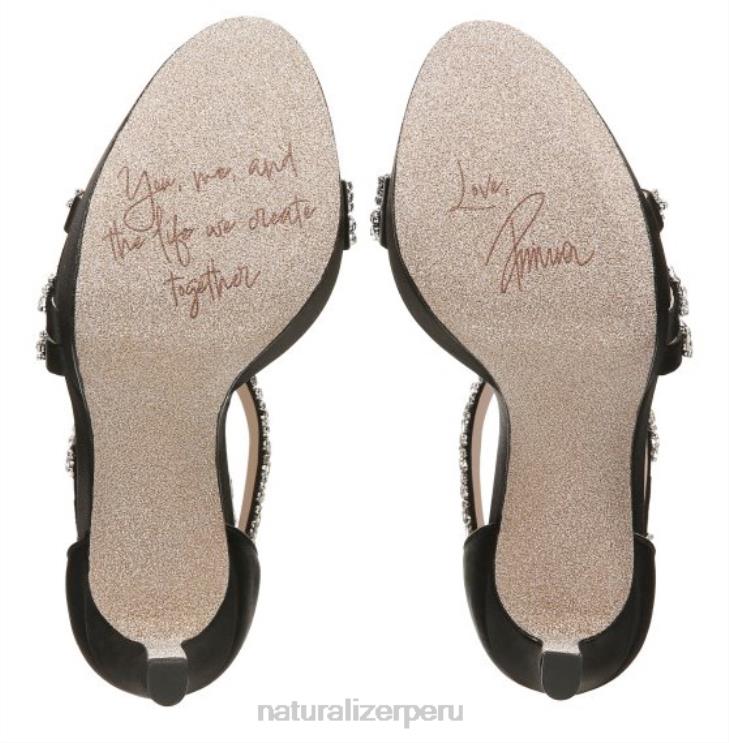 You, me, and
the life we create
together
Love,
naturalizerperu